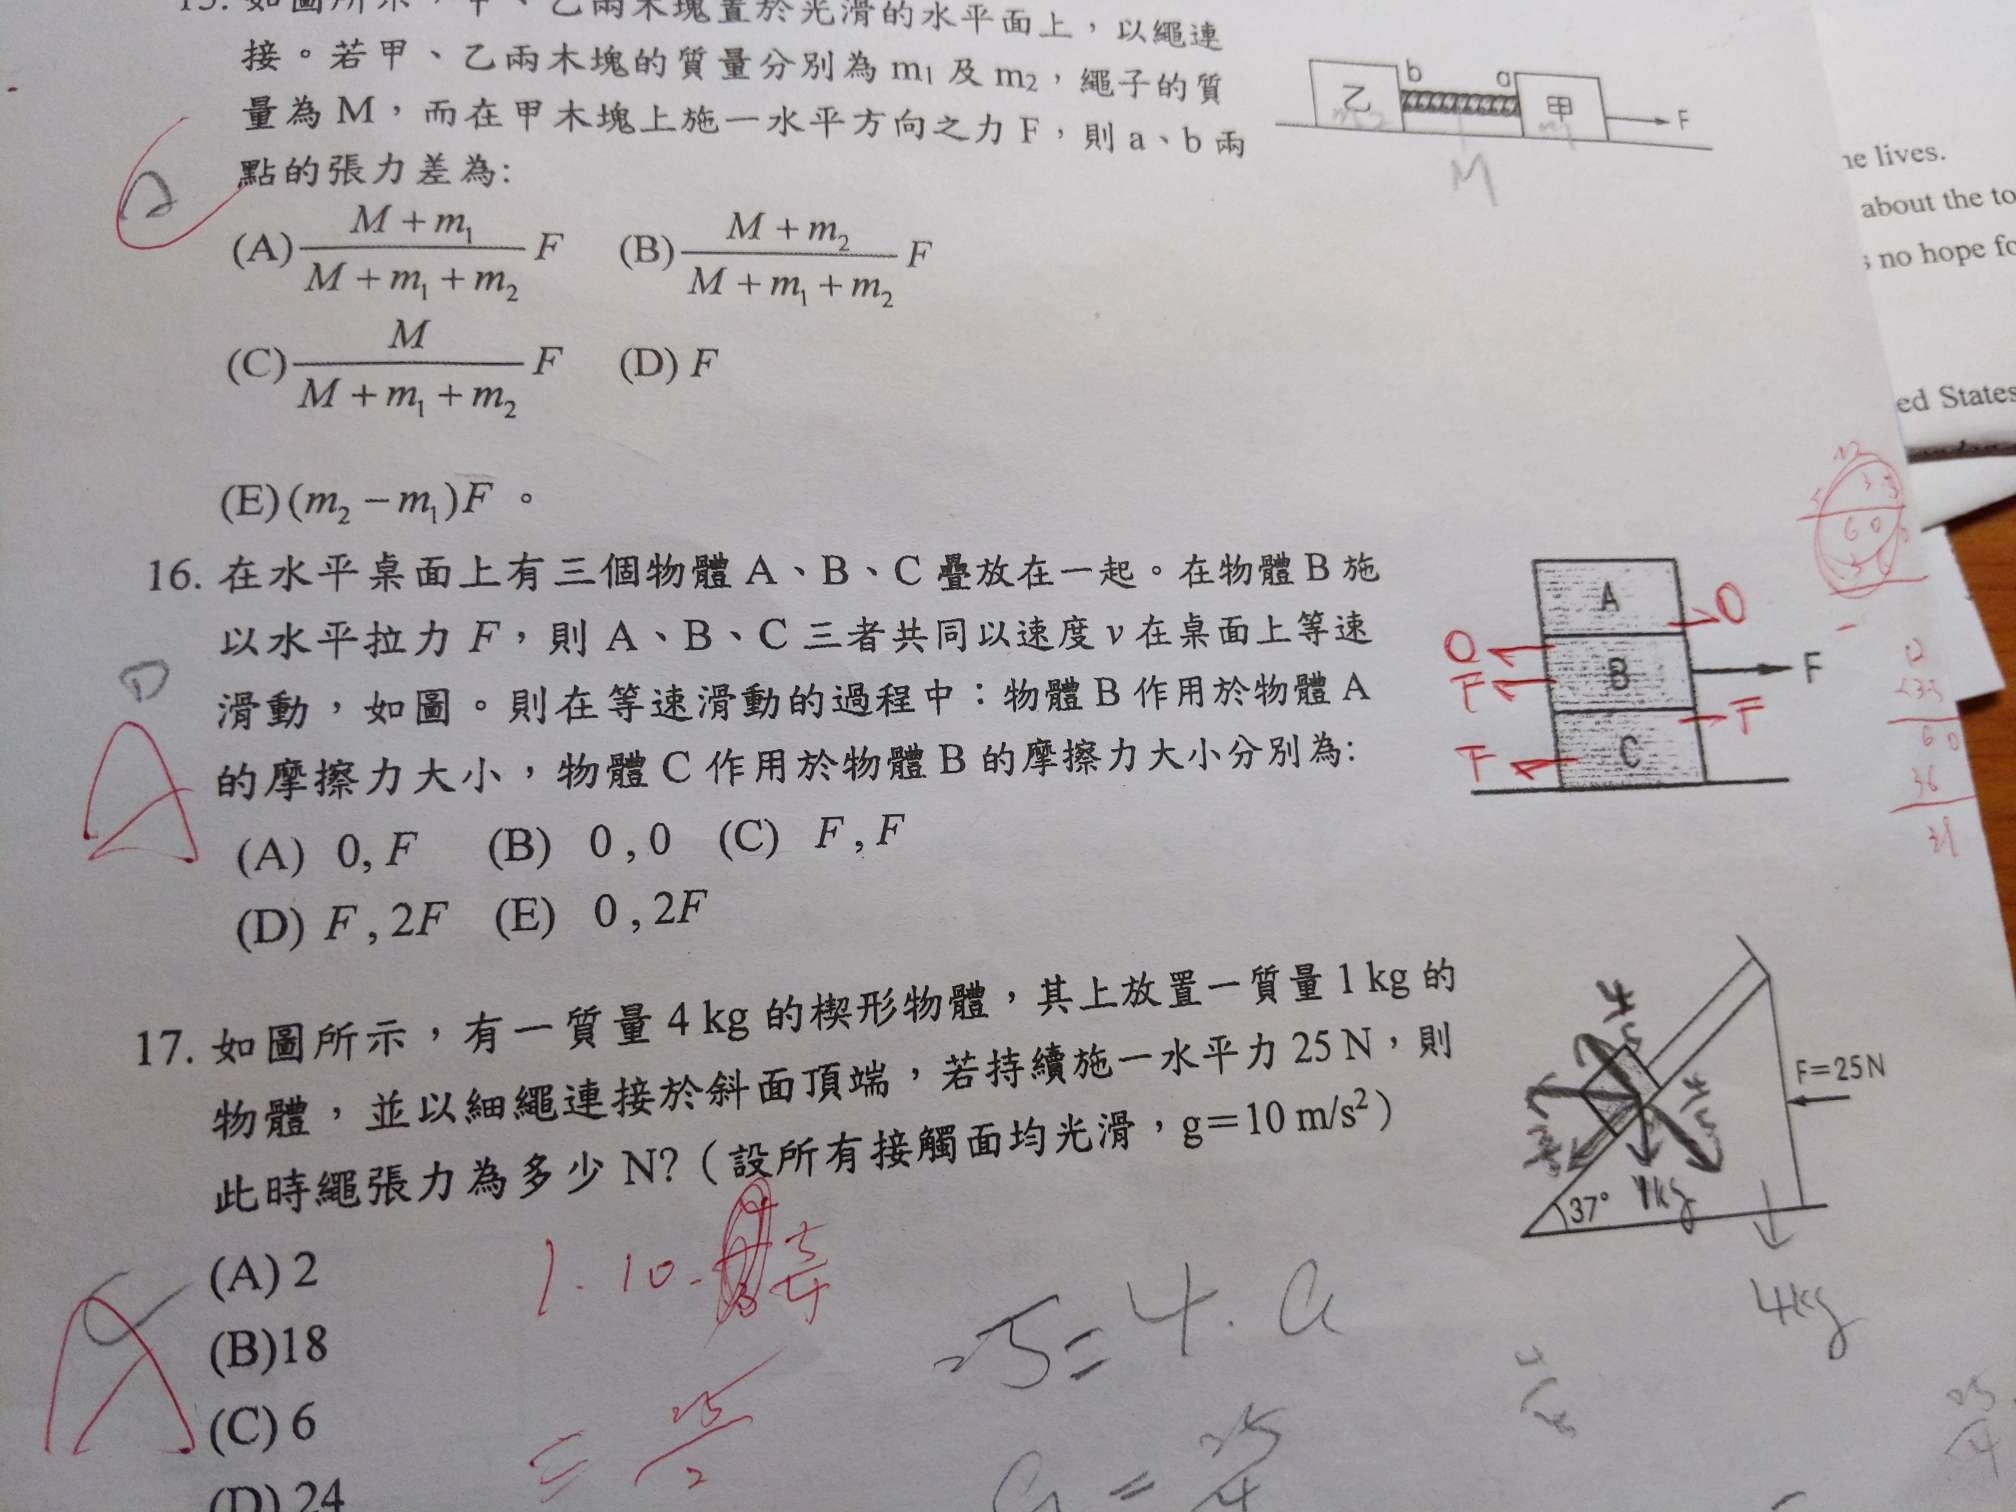 15. 如圖所示，甲、乙兩木塊置於光滑的水平面上，以繩連
接。若甲、乙兩木塊的質量分別為 m₁ 及 m₂，繩子的質
量為 M，而在甲木塊上施一水平方向之力 F，則 a、b 兩
點的張力差為:
乙 b a 甲 F
M
(A) (M+m₁)/(M+m₁+m₂) F (B) (M+m₂)/(M+m₁+m₂) F
(C) M/(M+m₁+m₂) F (D) F
(E) (m₂−m₁)F 。
16. 在水平桌面上有三個物體 A、B、C 疊放在一起。在物體 B 施
以水平拉力 F，則 A、B、C 三者共同以速度 v 在桌面上等速
滑動，如圖。則在等速滑動的過程中：物體 B 作用於物體 A
的摩擦力大小，物體 C 作用於物體 B 的摩擦力大小分別為:
A 0
0 B F
F F
F C
D
A
(A) 0, F (B) 0, 0 (C) F, F
(D) F, 2F (E) 0, 2F
17. 如圖所示，有一質量 4 kg 的楔形物體，其上放置一質量 1 kg 的
物體，並以細繩連接於斜面頂端，若持續施一水平力 25 N，則
此時繩張力為多少 N?（設所有接觸面均光滑，g＝10 m/s²）
F=25N
37° 1kg
4kg
(A) 2
(B) 18
(C) 6
(D) 24
A
1·10·
25=4·a
a=25/4
=25/2
25/4
ne lives.
about the to
s no hope fo
ed States